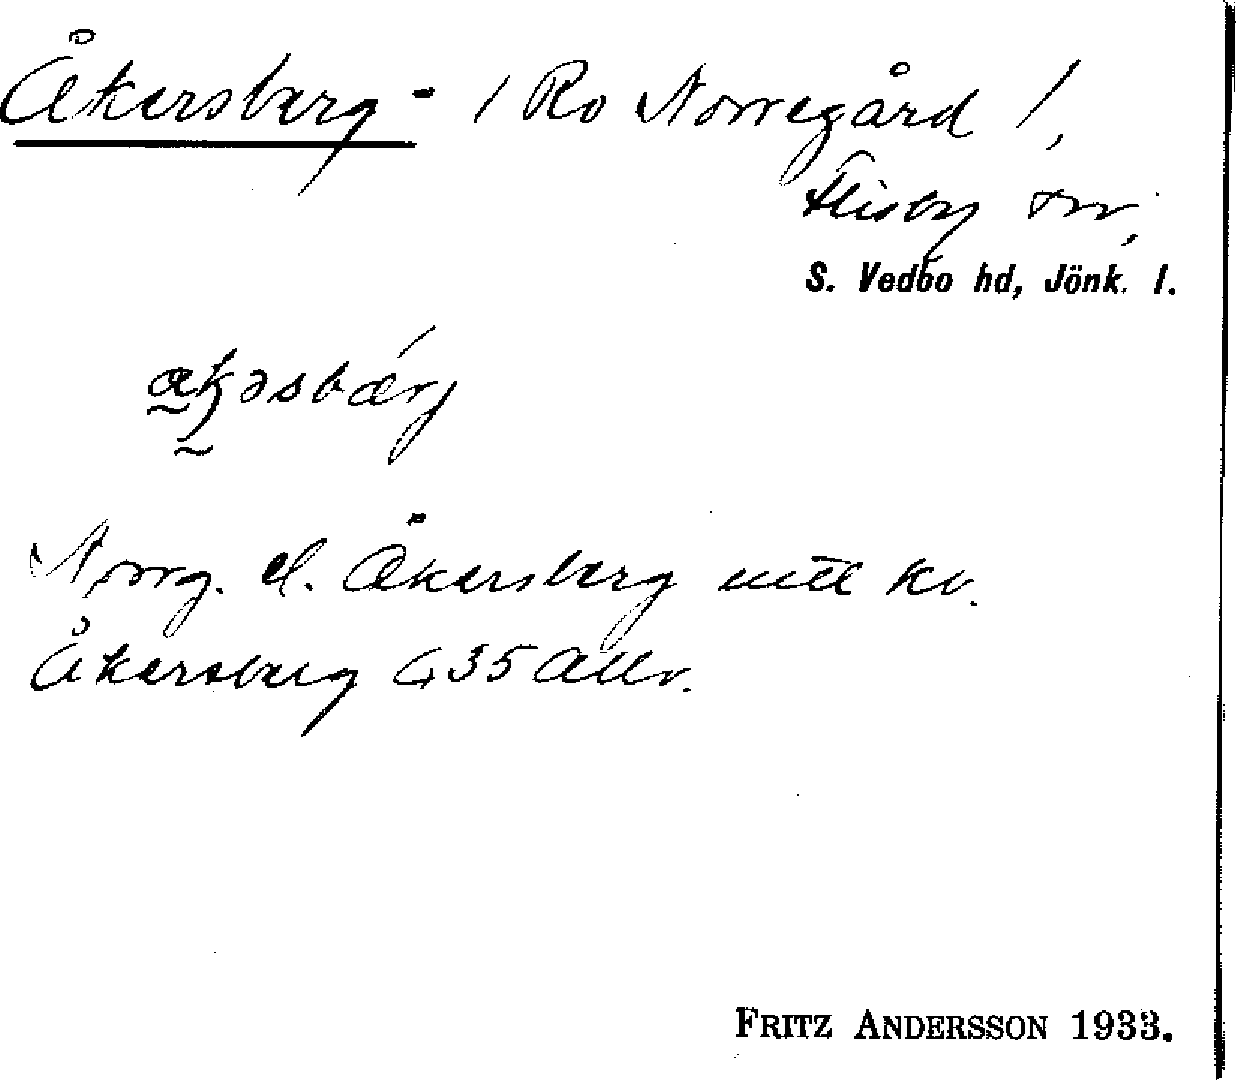 Åkersberg - / Ro Norregård /,
Flisby sn,
S. Vedbo hd, Jönk. l.
Norrg. el. Åkersberg mtl Kv.
Åkersberg G 35 Allv.
FRITZ ANDERSSON 1933.